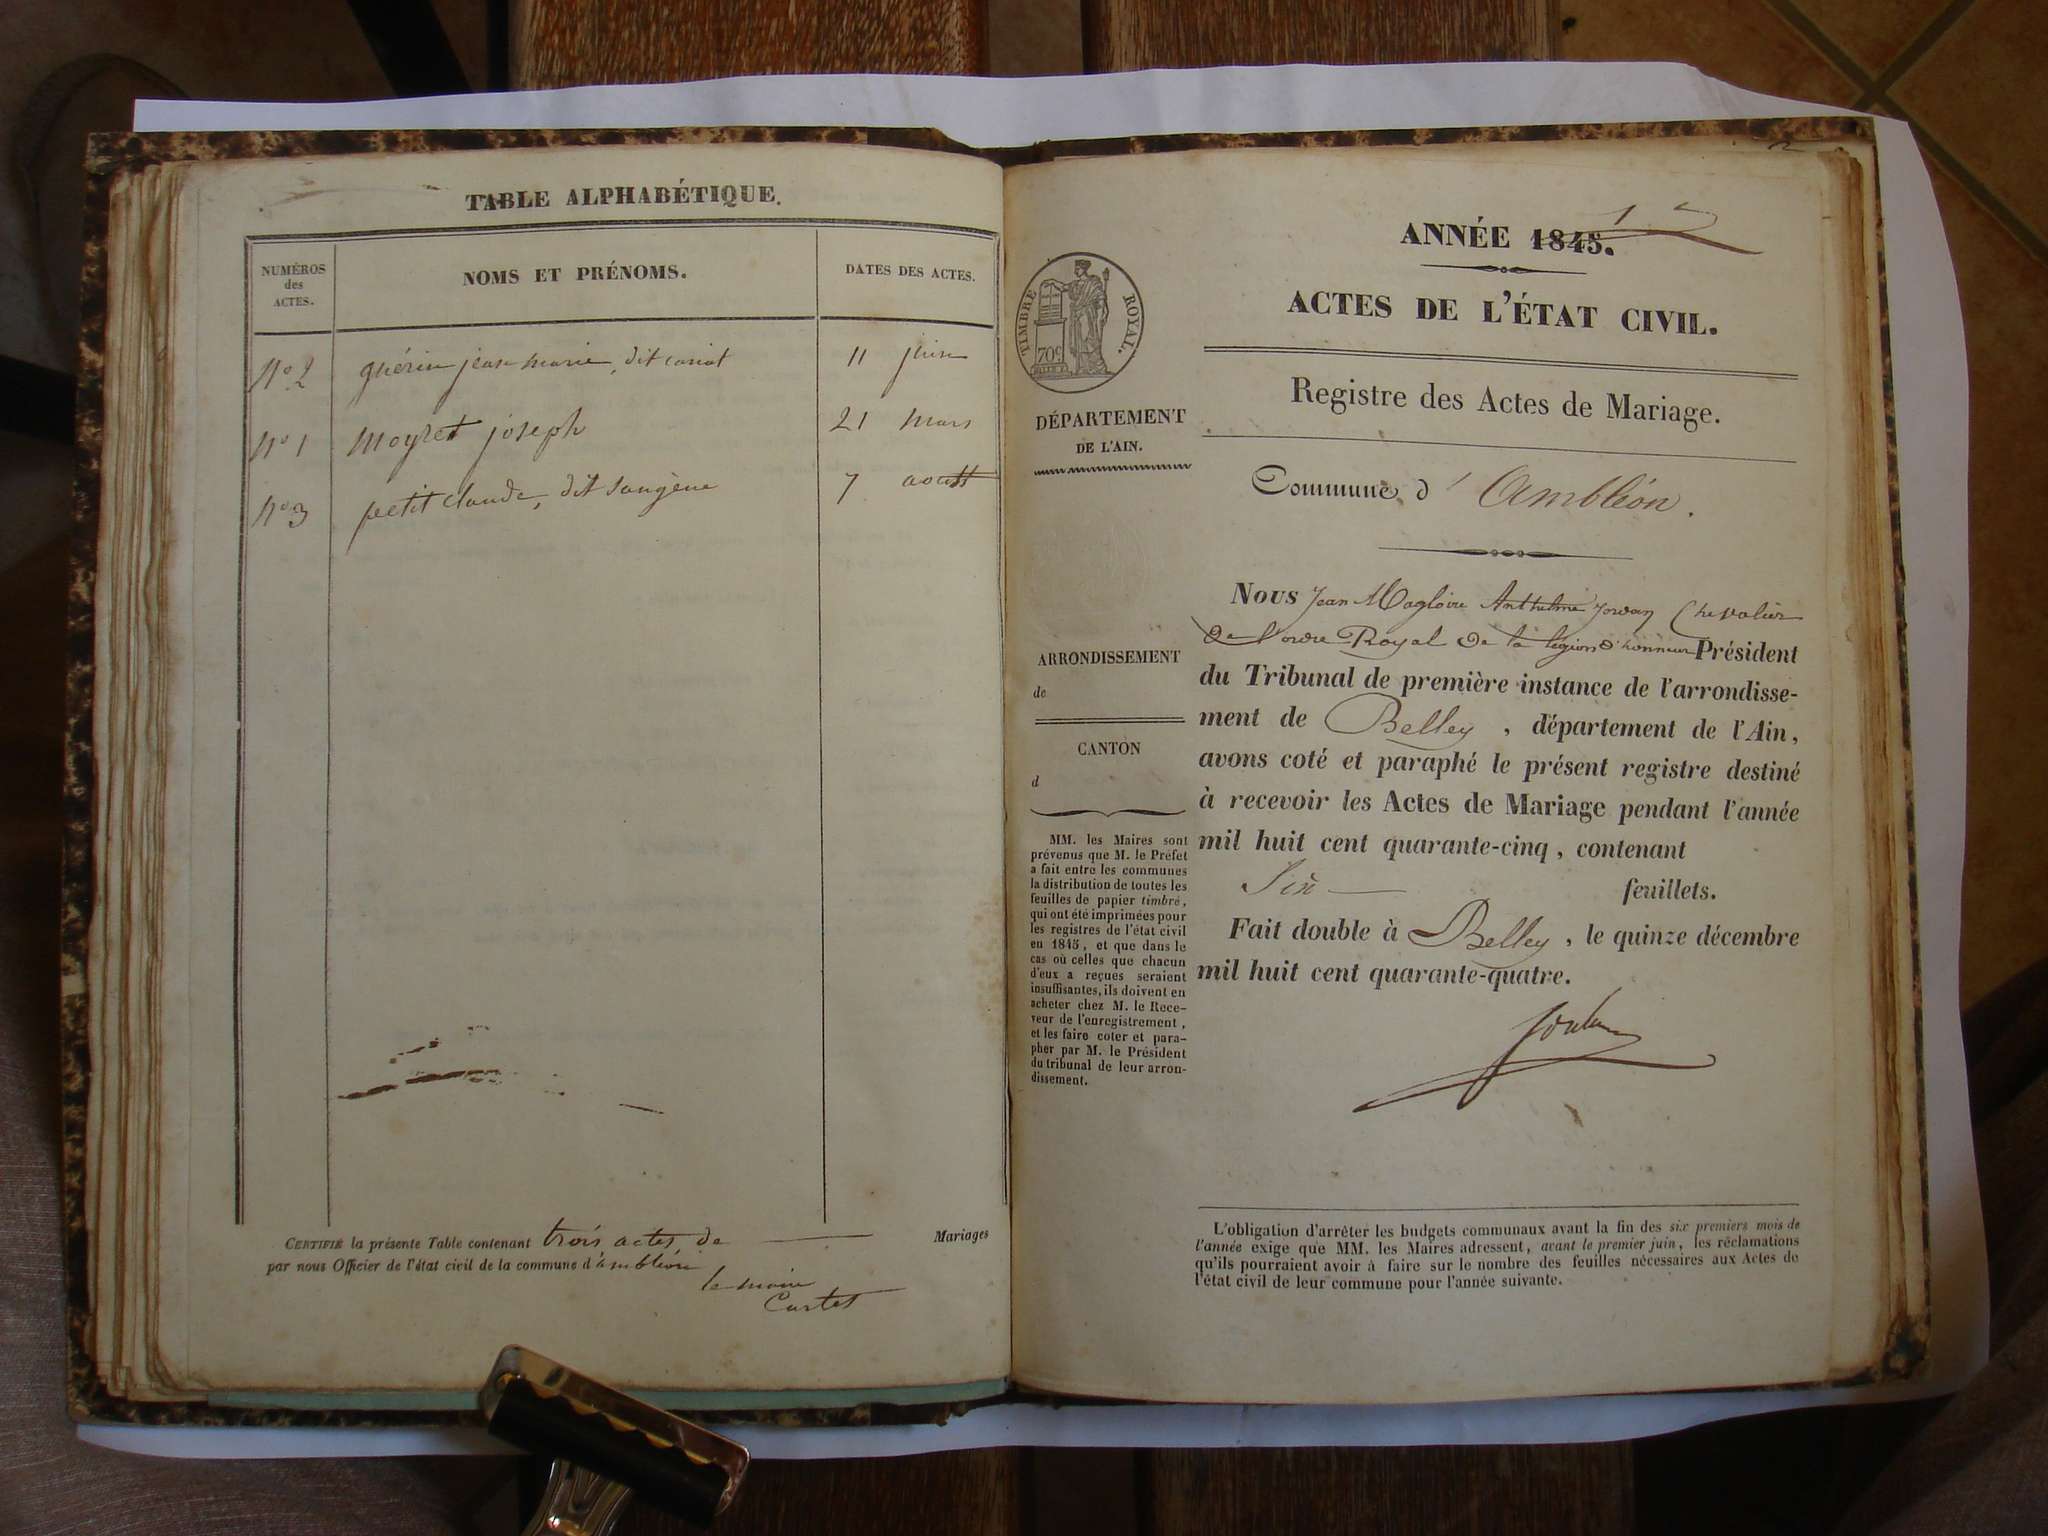 TABLE ALPHABÉTIQUE.
NUMÉROS
des
ACTES.
NOMS ET PRÉNOMS.
DATES DES ACTES.
No 2 guérin jean marie, dit 11 juin
No 1 Moyret joseph 21 mars
No 3 petit claude, dit 7 aoust
CERTIFIÉ la présente Table contenant trois actes de Mariages
par nous Officier de l'état civil de la commune d'ambléon
le maire
Curtet
ANNÉE 1845.
ACTES DE L'ÉTAT CIVIL.
Registre des Actes de Mariage.
Commune d' Ambléon.
TIMBRE ROYAL.
70c
DÉPARTEMENT
DE L'AIN.
ARRONDISSEMENT
de
CANTON
d
MM. les Maires sont
prévenus que M. le Préfet
a fait entre les communes
la distribution de toutes les
feuilles de papier timbré,
qui ont été imprimées pour
les registres de l'état civil
en 1845, et que dans le
cas où celles que chacun
d'eux a reçues seraient
insuffisantes, ils doivent en
acheter chez M. le Rece-
veur de l'enregistrement,
et les faire coter et para-
pher par M. le Président
du tribunal de leur arron-
dissement.
Nous Jean Magloire Anthelme Jordan Chevalier
De l'ordre Royal De la légion D'honneur Président
du Tribunal de première instance de l'arrondisse-
ment de Belley, département de l'Ain,
avons coté et paraphé le présent registre destiné
à recevoir les Actes de Mariage pendant l'année
mil huit cent quarante-cinq, contenant
Six feuillets.
Fait double à Belley, le quinze décembre
mil huit cent quarante-quatre.
Jordan
L'obligation d'arrêter les budgets communaux avant la fin des six premiers mois de
l'année exige que MM. les Maires adressent, avant le premier juin, les réclamations
qu'ils pourraient avoir à faire sur le nombre des feuilles nécessaires aux Actes de
l'état civil de leur commune pour l'année suivante.